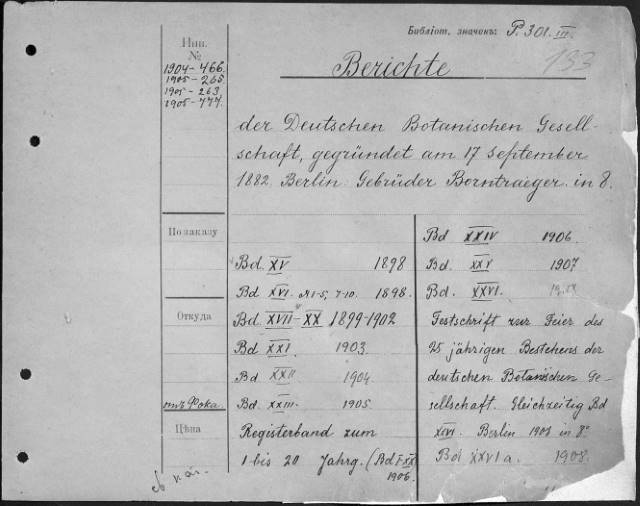 Библіот. значенъ: P. 301. III.
133
Инв.
№
1904-466.
1905-265.
1905-263.
1905-777.
Berichte
der Deutschen Botanischen Gesell-
schaft, gegründet am 17 September
1882. Berlin. Gebrüder Borntraeger. in 8.
По заказу
Откуда
отъ Фока.
Цѣна
Bd. XV 1898
Bd XVI. №1-5, 7-10. 1898.
Bd. XVII-XX 1899-1902
Bd XXI. 1903.
Bd XXII 1904
Bd. XXIII. 1905
Registerband zum
1 bis 20 Jahrg. (Bd I-XX
1906.
Bd XXIV 1906.
Bd. XXV 1907
Bd. XXVI.
Festschrift zur Feier des
25 jährigen Bestehens der
deutschen Botanischen Ge-
sellschaft. Gleichzeitig Bd
Berlin 1908 in 8º
Bd XXVI a. 1908.